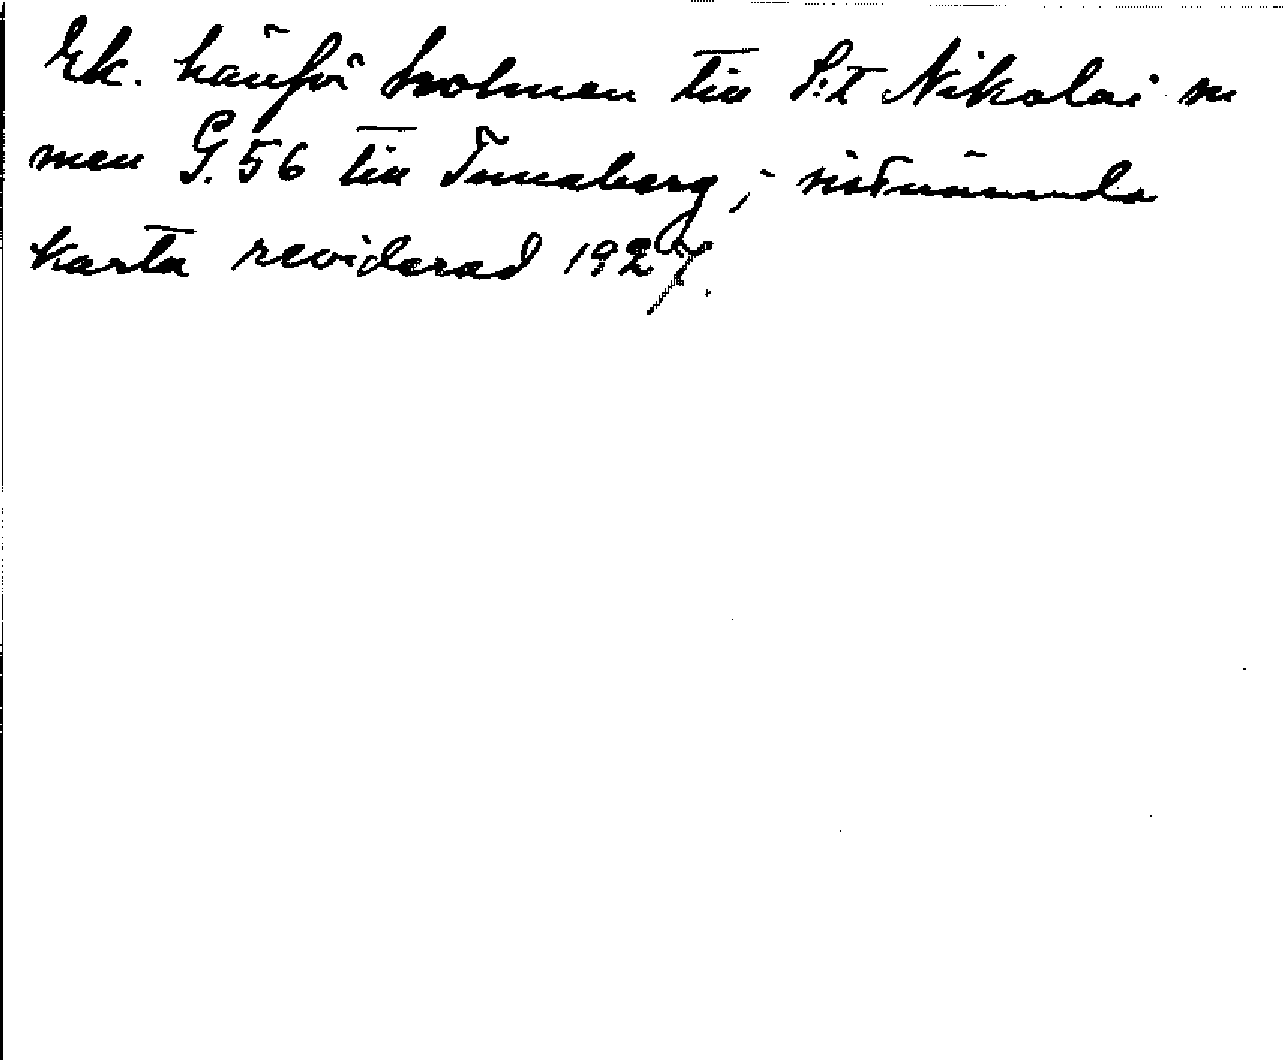 Ek. hänför holmen till S:t Nikolai sn
men G. 56 till Tunaberg; sistnämnda
karta reviderad 1927.